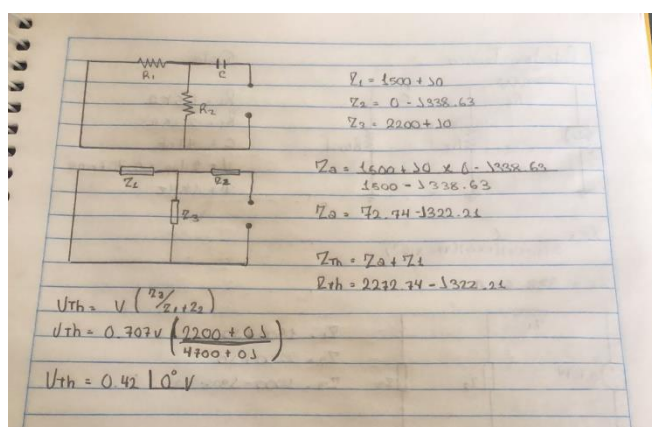 R1 C
R2
Z1 = 1500 + J0
Z2 = 0 - J338.63
Z3 = 2200 + J0
Z1 Z2
Z3
Za = 1500 + J0 x 0 - J338.63
1500 - J338.63
Za = 72.74 - J322.21
ZTh = Za + Z1
RTh = 2272.74 - J322.21
VTh = V (Z3/Z1+Z2)
VTh = 0.707V (2200 + 0J
4700 + 0J)
VTh = 0.42 |0° V